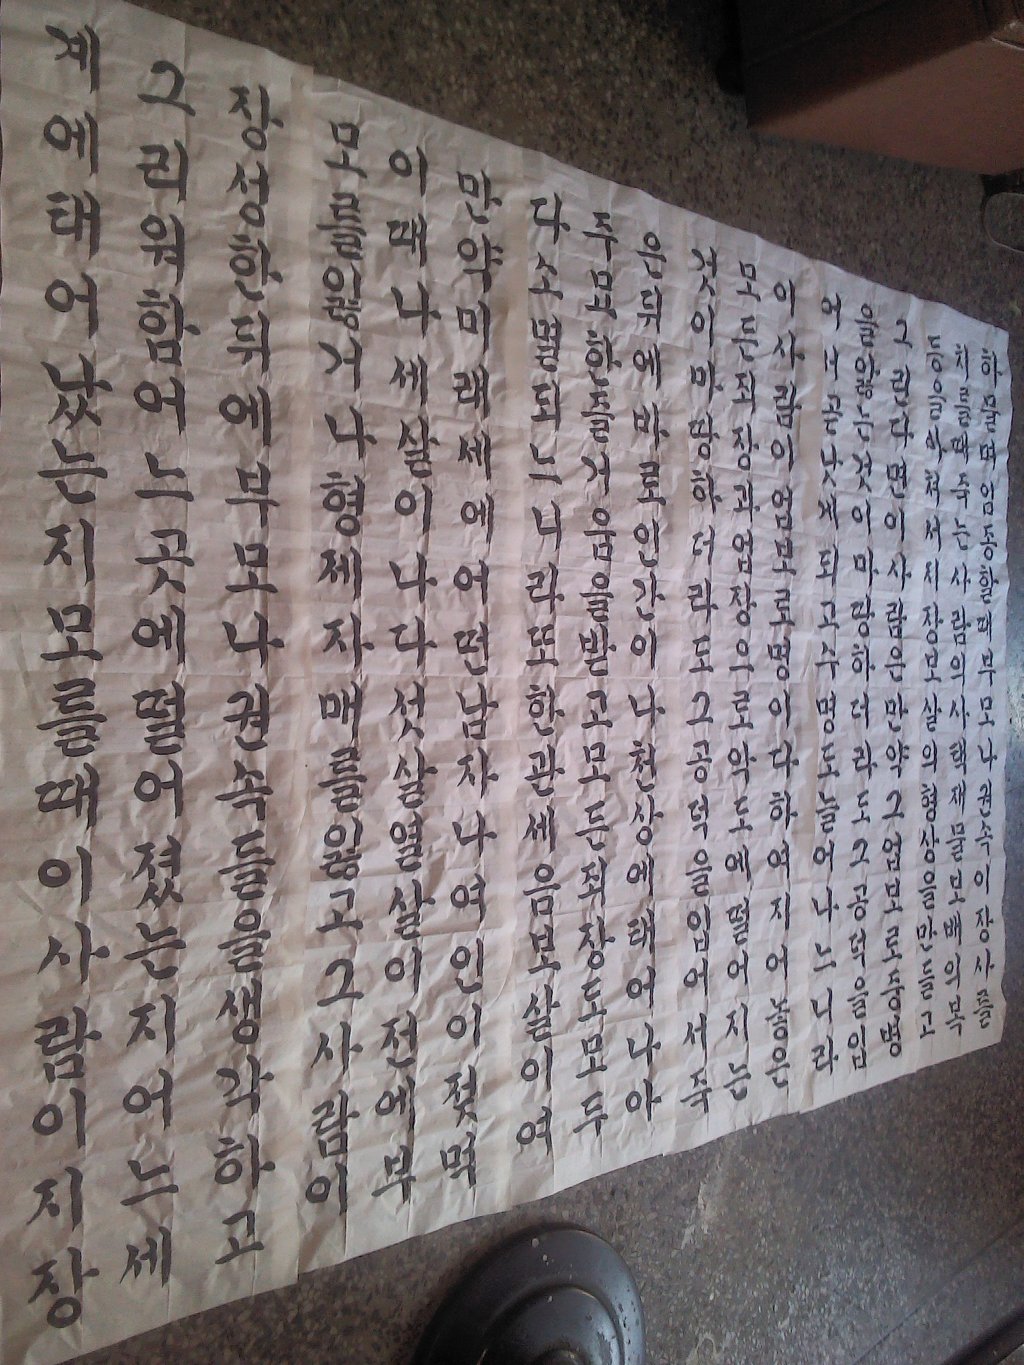 또임종할때부모나권속이장사를
치를때죽는사람의사택재물보배의복
지장보살의형상을만들고
그린다면이사람은만약그업보로중병
앓는것이마땅하더라도그공덕으로인
곧낫게되고수명도늘어나느니라
이사람의업보로명이다하여지어놓은
모든죄장과업장으로악도에떨어지는
것이마땅하더라도그공덕을입어서죽
은뒤에바로인간이나천상에태어나아
주묘한즐거움을받고모든죄장도모두
다소멸되느니라또한관세음보살이여
만약미래세에어떤남자나여인이젖먹
이때나세살이나다섯살열살이전에부
모를잃거나형제자매를잃고그사람이
장성한뒤에부모나권속들을생각하고
어느곳에떨어졌는지어느세
계에태어났는지모를때이사람이지장